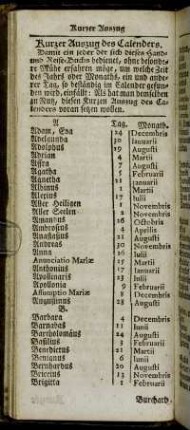 Kurzer Auszug
Kurzer Auszug des Calenders.
Damit ein jeder der sich dieses Hand-
und Reise-Buchs bedienet, ohne besonde-
re Mühe erfahren möge, um welche Zeit
des Jahrs oder Monaths, ein und ande-
rer Tag, so beständig im Calender gefun-
den wird, einfällt: Als hat man demselben
zu Nutz, diesen Kurtzen Auszug des Ca-
lenders voran setzen wollen.
A Tag. Monath.
Adam, Eva 24 Decembris
Adelgunda 30 Januarii
Adolphus 19 Augusti
Adrian 4 Martii
Affra 7 Augusti
Agatha 5 Februarii
Agnetha 21 Januarii
Albinus 1 Martii
Alexius 17 Julii
Aller Heiligen 1 Novembris
Aller Seelen 2 Novembris
Amandus
Ambrosius 4 Aprilis
Anastasius 21 Augusti
Andreas 30 Novembris
Anna 26 Julii
Annunciatio Mariæ 25 Martii
Anthonius 17 Januarii
Apollinaris 23 Julii
Apollonia 9 Februarii
Assumptio Mariæ 15 Augusti
Augustinus 28 Augusti
B.
Barbara 4 Decembris
Barnabas 11 Junii
Bartholomäus 24 Augusti
Basilius
Benedictus 21 Martii
Benignus 6 Junii
Bernhardus 20 Augusti
Briccius 13 Novembris
Brigitta 1 Februarii
Burchard,